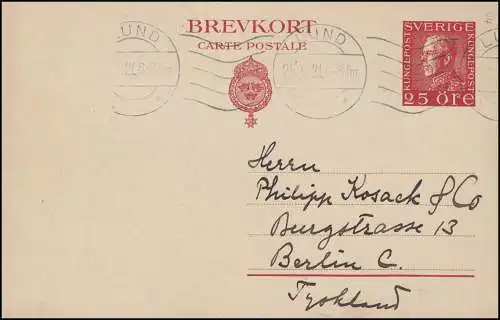 BREVKORT
CARTE POSTALE
LUND
LUND
SVERIGE
KUNGL.POST
KUNGL.POST
25 ÖRE
Herrn
Philipp Kosack & Co
Burgstrasse 13
Berlin C.
Tyskland